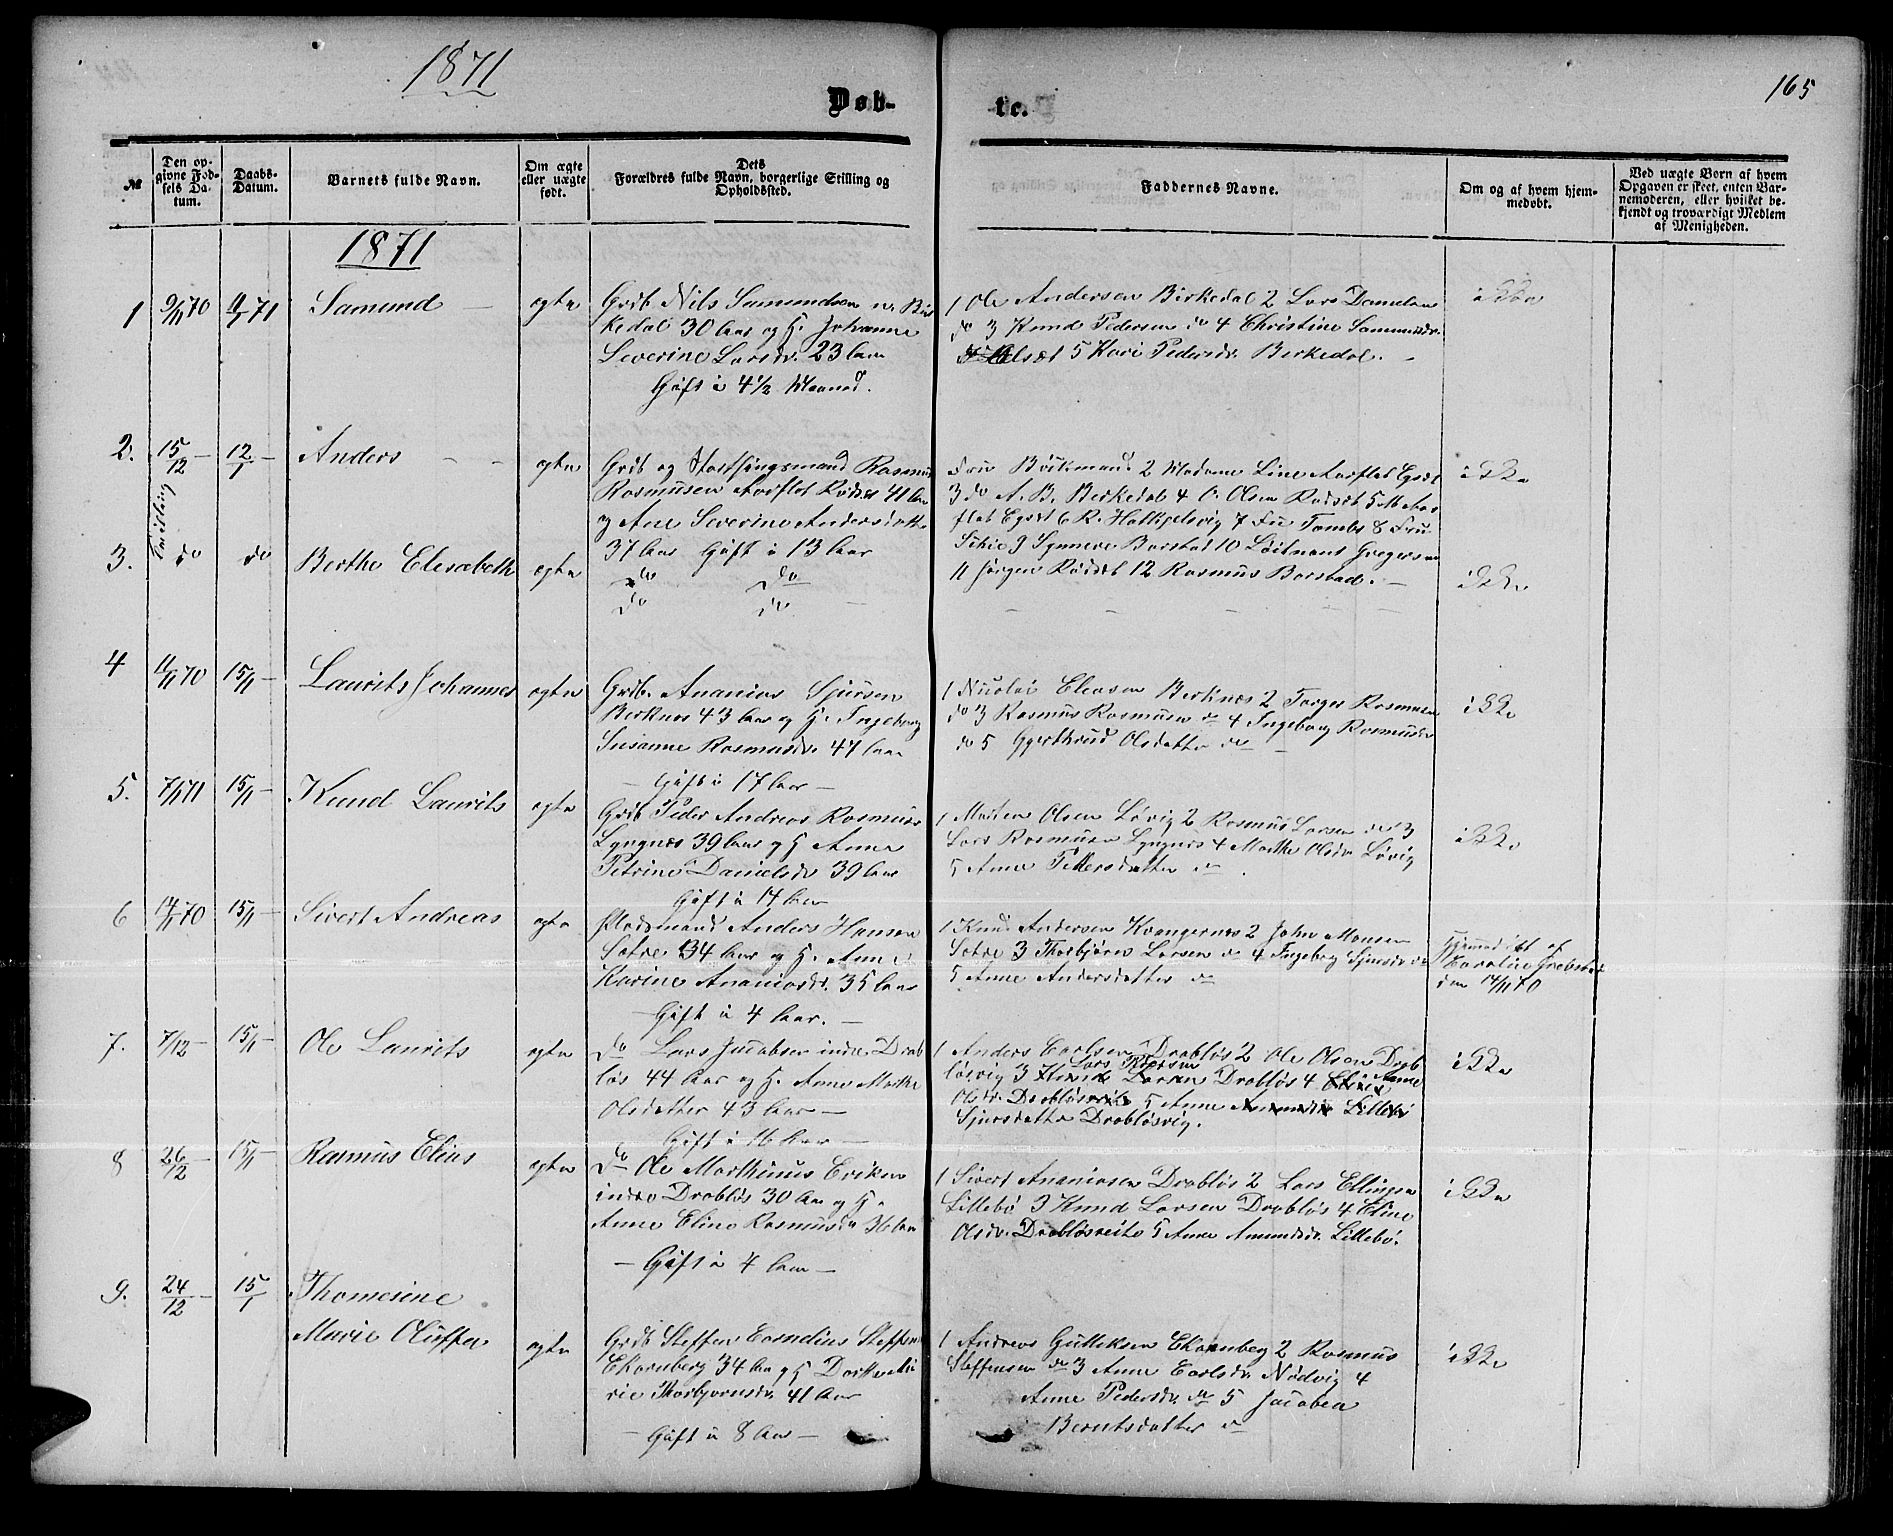 1871
Døb-
te.
165
№
Den op-
givne Fød-
sels Da-
tum.
Daabs-
Datum.
Barnets fulde Navn.
Om ægte
eller uægte
født.
Dets
Forældres fulde Navn, borgerlige Stilling og
Opholdssted.
Faddernes Navne.
Om og af hvem hjem-
medøbt.
Ved uægte Børn af hvem
Opgaven er skeet, enten Bar-
nemoderen, eller hvilket be-
kjendt og troværdigt Medlem
af Menigheden.
1871
1 9/11 70 71 Samund — ægte
Grdb. Nils Samundsen Bir
kedal 30 Aar og H. Johanne
Severine Larsdr. 23 Aar
Gift i 4 1/2 Maaned.
1 Ole Andersen Birkedal 2 Lars Danielsen
do 3 Knud Pedersen do 4 Christine Samundsdr.
5 Kari Pedersdr. Birkedal.
ikke
2. 15/12 — 12/1 — Anders — — ægte
Grdb og Storthingsmand Rasmus
Rasmusen Aarflot 41 Aar
og Ane Severine Andersdatter
37 Aar Gift i 13 Aar
Fru 2 Madame Line Aarflot Egset
3 do A. B. Birkedal 4 O. Olsen 5 M. Aar
flot Egset 6 R. 7 Fru 8 Fru
9 Synneve Barstad 10 Løitnant Gregersen
11 Jørgen 12 Rasmus Barstad. —
ikke
Tvilling
3. do do Berthe Elisabeth ægte
do do
do do
ikke
4 11/11 70 15/1 — Laurits Johannes ægte
Grdb. Ananias Sjursen
Berknes 43 Aar og H. Ingeborg
Susanne Rasmusdr. 47 Aar
— Gift i 17 Aar —
1 Nicolai Eleasen Berknes 2 Torger Rasmusen
do 3 Rasmus Rasmusen do 4 Ingeborg Rasmusdr
do 5 Gjerthrud Olsdatter do —
ikke
5. 7/1 71 15/1 — Knud Laurits ægte
Grdb Peder Andreas Rasmusen
Lyngnes 39 Aar og H Anne
Petrine Danielsdr 39 Aar
Gift i 14 Aar
1 Morten Olsen Løvig 2 Rasmus Larsen do 3
Lars Rasmusen Lyngnes 4 Marthe Olsdr. Løvig
5 Anne Pettersdatter do .
ikke
6 14/11 70 15/1 — Sivert Andreas ægte
Pladsmand Anders Hansen
Satre 34 Aar og H. Anne
Karine Ananiasdr. 35 Aar
— Gift i 4 Aar. —
1 Knud Andersen Kvangernes 2 John Monsen
Satre 3 Thorbjørn Larsen do 4 Ingeborg Sjursdr do
5 Anne Andersdatter do
Hjemmedøbt af
Caroline Grebstad
den 14/11 70
7. 7/12 — 15/1 — Ole Laurits ægte
do Lars Jacobsen indre Drab
løs 44 Aar og H. Anne Marthe
Olsdatter 43 Aar —
Gift i 16 Aar —
1 Anders Carlsen Drabløs 2 Ole Olsen Drab
Lars
løsvig 3 Knud Larsen Drabløs 4 Eline Anne
Olsdr. Drabløsreite 5 Anne Amundsdr Lillebø
Sjursdatter Drabløsvig.
ikke
8 26/12 — 15/1 — Rasmus Elias ægte
do Ole Marthinus Eriksen
indre Drabløs 30 Aar og H.
Anne Eline Rasmusdr 36 Aar
— Gift i 4 Aar —
1 Sivert Ananiasen Drabløs 2 Lars Ellingsen
Lillebø 3 Knud Larsen Drabløs 4 Eline
Olsdr. Drabløsreite 5 Anne Amundsdr. Lillebø.
ikke
9. 24/12 — 15/1 Thomesine
Marie Oluffa ægte
Grdb Steffen Cornelius Steffens
Ekornberg 34 Aar og H Dorthe Ma
rie Thorbjørnsdr. 41 Aar
— Gift i 8 Aar —
1 Andreas Gulliksen Ekornberg 2 Rasmus
Steffensen do 3 Anne Carlsdr. Nødvig 4
Anne Pedersdr. do 5 Jacobea
Berntsdatter do
ikke